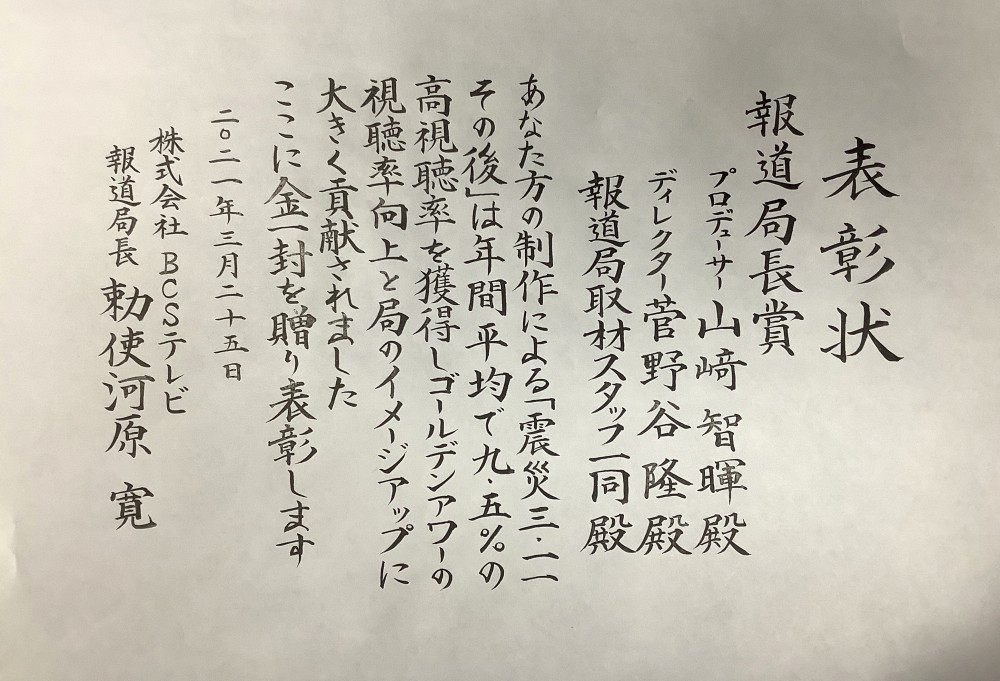 表彰状
報道局長賞
プロデューサー山﨑智暉殿
ディレクター菅野谷隆殿
報道局取材スタッフ一同殿
あなた方の制作による「震災三・一一
その後」は年間平均で九・五%の
高視聴率を獲得しゴールデンアワーの
視聴率向上と局のイメージアップに
大きく貢献されました
ここに金一封を贈り表彰します
二〇二一年三月二十五日
株式会社BCSテレビ
報道局長 勅使河原 寛